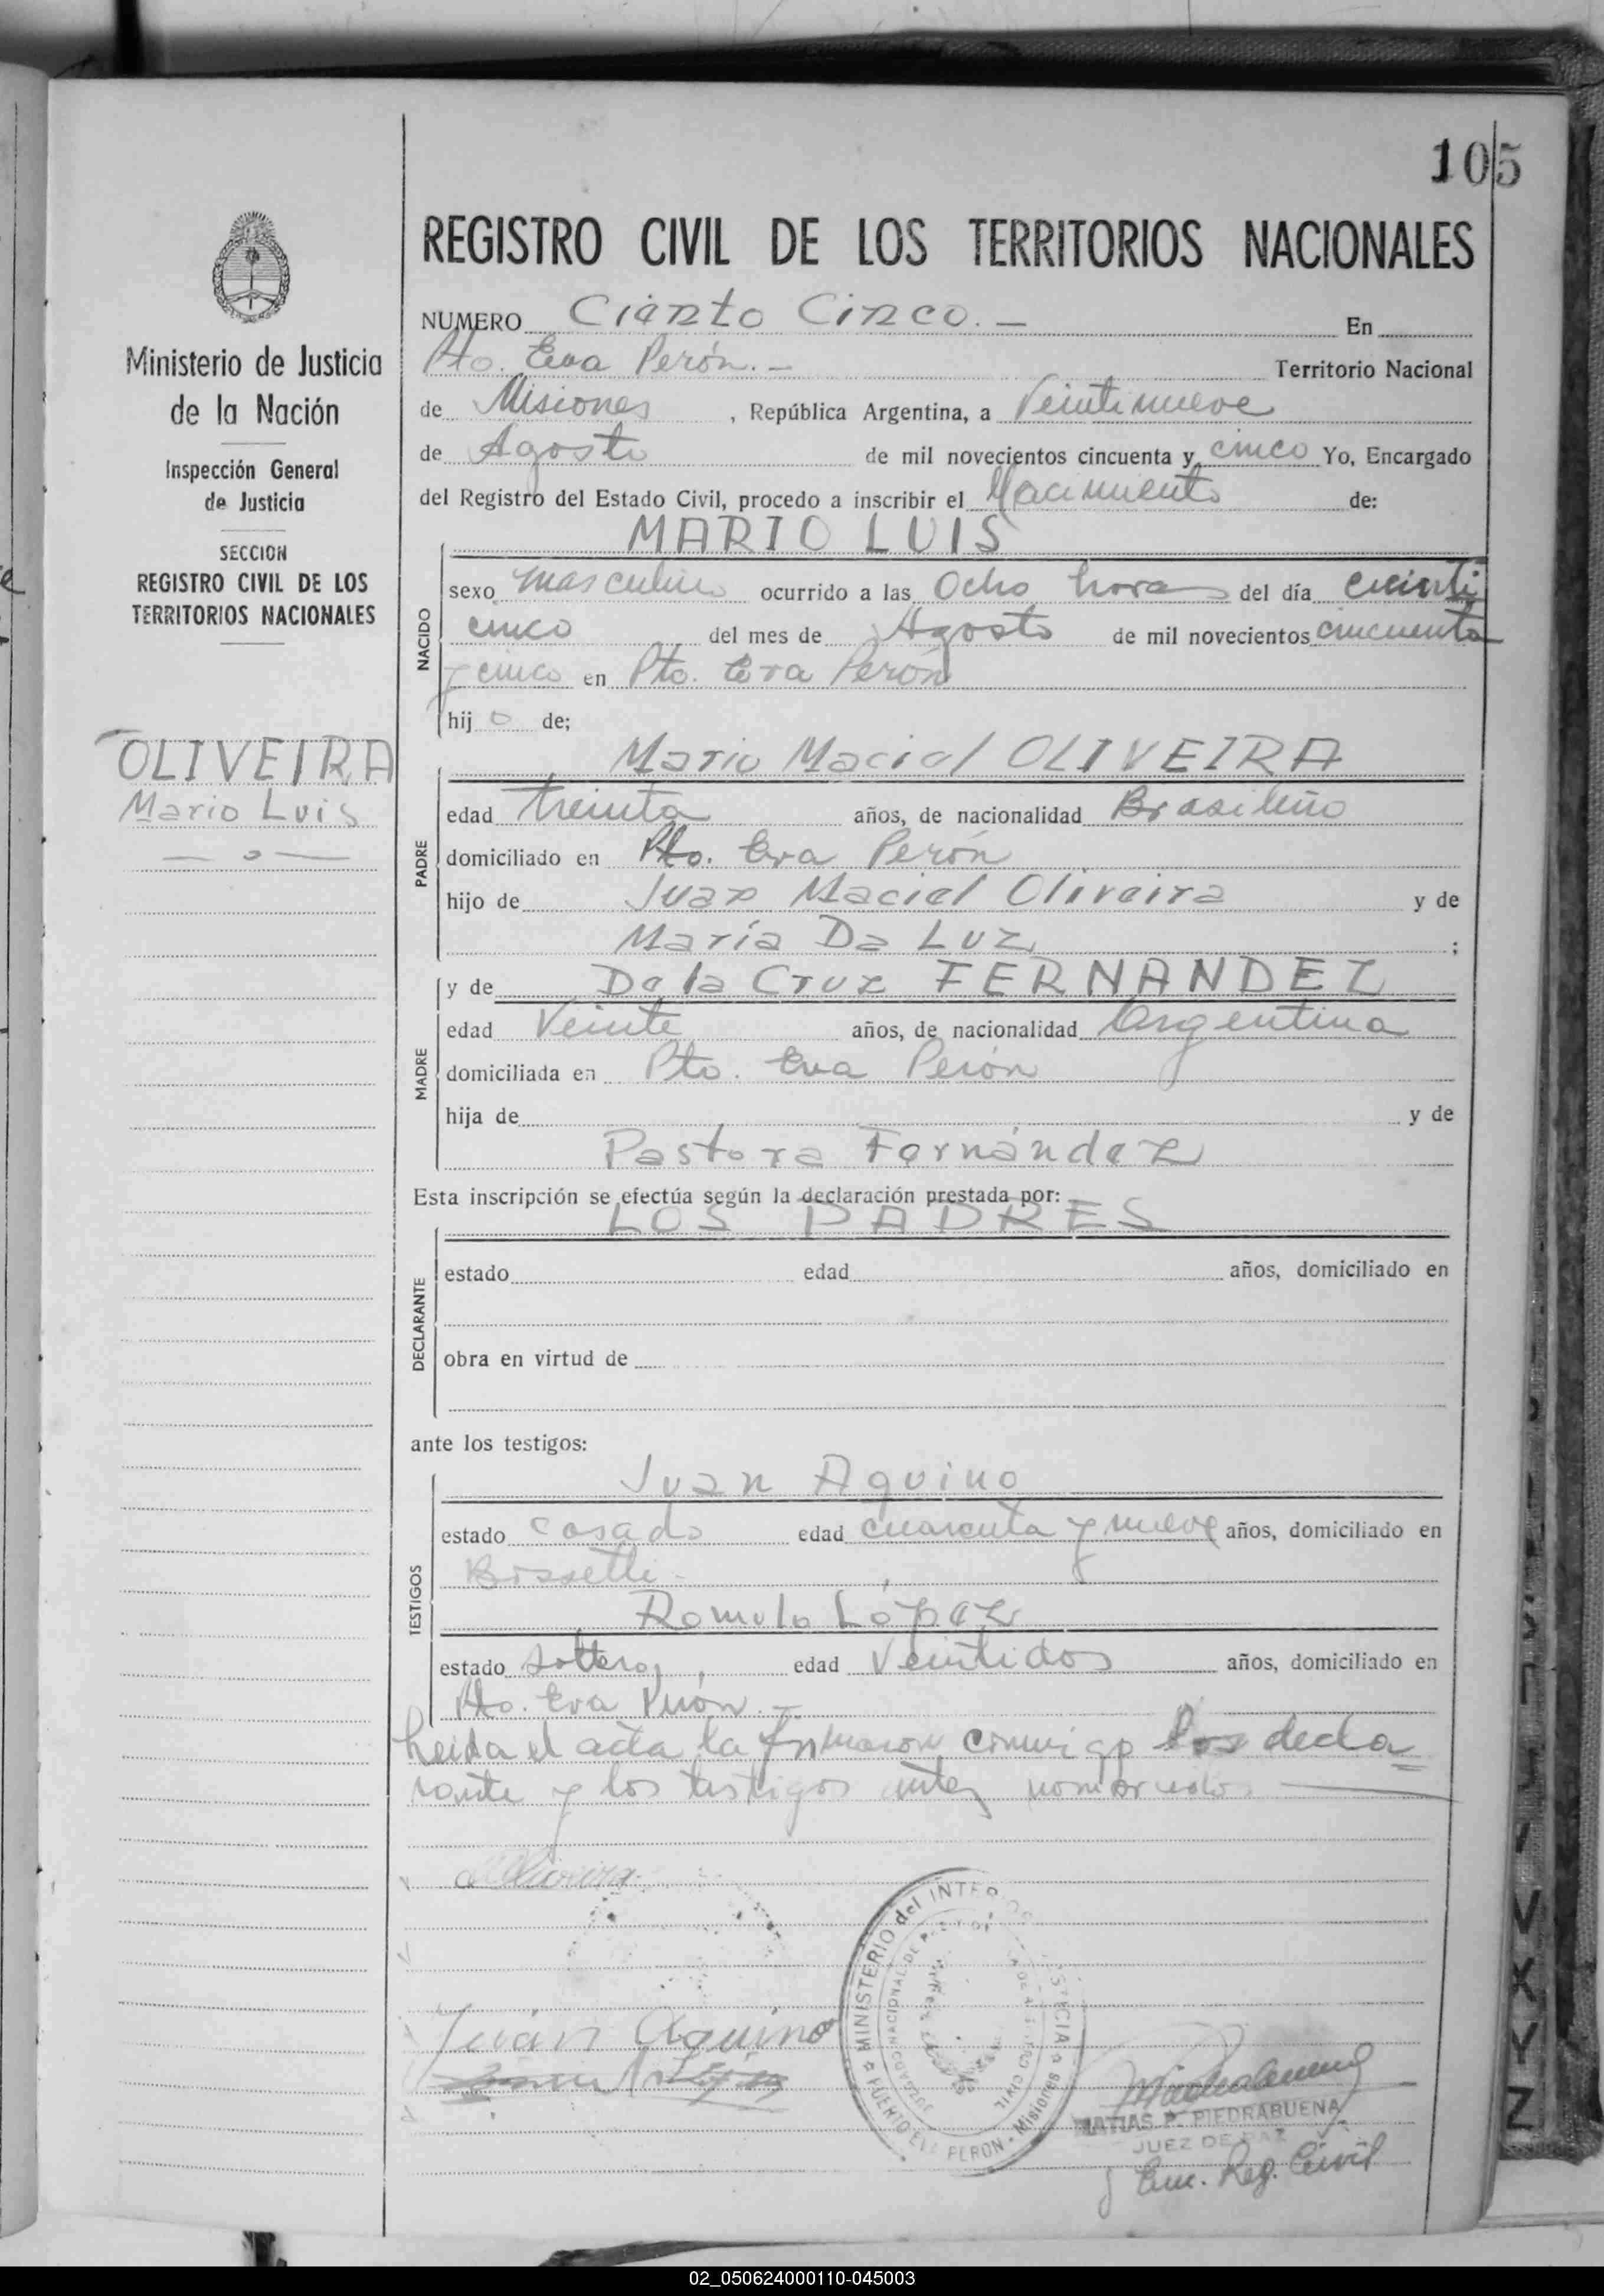 105
REGISTRO CIVIL DE LOS TERRITORIOS NACIONALES
Ministerio de Justicia
de la Nación
Inspección General
de Justicia
SECCION
REGISTRO CIVIL DE LOS
TERRITORIOS NACIONALES
OLIVEIRA
Mario Luis
NUMERO Ciento Cinco.- En
Pto. Eva Perón.- Territorio Nacional
de Misiones, República Argentina, a Veintinueve
de Agosto de mil novecientos cincuenta y cinco Yo, Encargado
del Registro del Estado Civil, procedo a inscribir el Nacimiento de:
MARIO LUIS
NACIDO
sexo masculino ocurrido a las Ocho horas del día veinti
cinco del mes de Agosto de mil novecientos cincuenta
y cinco en Pto. Eva Perón
hijo de;
Mario Maciel OLIVEIRA
PADRE
edad treinta años, de nacionalidad Brasileño
domiciliado en Pto. Eva Perón
hijo de Juan Maciel Oliveira y de
María Da Luz ;
y de De la Cruz FERNANDEZ
MADRE
edad Veinte años, de nacionalidad Argentina
domiciliada en Pto. Eva Perón
hija de y de
Pastora Fernández
Esta inscripción se efectúa según la declaración prestada por:
LOS PADRES
DECLARANTE
estado edad años, domiciliado en
obra en virtud de
ante los testigos:
Juan Aquino
TESTIGOS
estado casado edad cuarenta y nueve años, domiciliado en
Bossetti-
Romulo López
estado soltero, edad Veintidos años, domiciliado en
Pto. Eva Perón.-
Leida el acta la firmaron conmigo los decla
rante y los testigos antes nombrados
Juan Aquino
MINISTERIO del INTERIOR JUSTICIA
PUERTO EVA PERON - Misiones
MATIAS P. PIEDRABUENA
JUEZ DE PAZ
y Enc. Reg. Civil
V
X
Y
Z
02_050624000110-045003